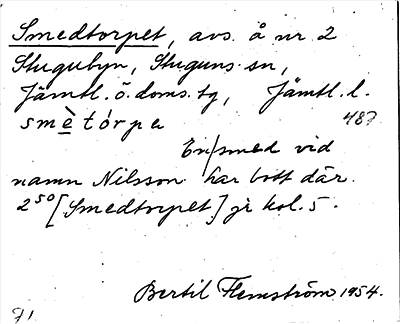 Smedtorpet, avs. å nr 2
Stugubyn, Stuguns sn,
Jämtl. ö. doms. tg, Jämtl. l.
smè tórpe 487
En smed vid
namn Nilsson har bott där.
2⁵⁰ [Smedtorpet] gr kol. 5.
Bertil Flemström 1954.
71